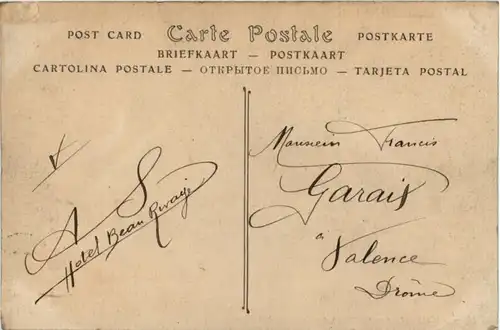 POST CARD Carte Postale POSTKARTE
BRIEFKAART — POSTKAART
CARTOLINA POSTALE — ОТКРЫТОЕ ПИСЬМО — TARJETA POSTAL
A S
Hotel Beau Rivage
Monsieur Francis
Garais
à
Valence
Drôme